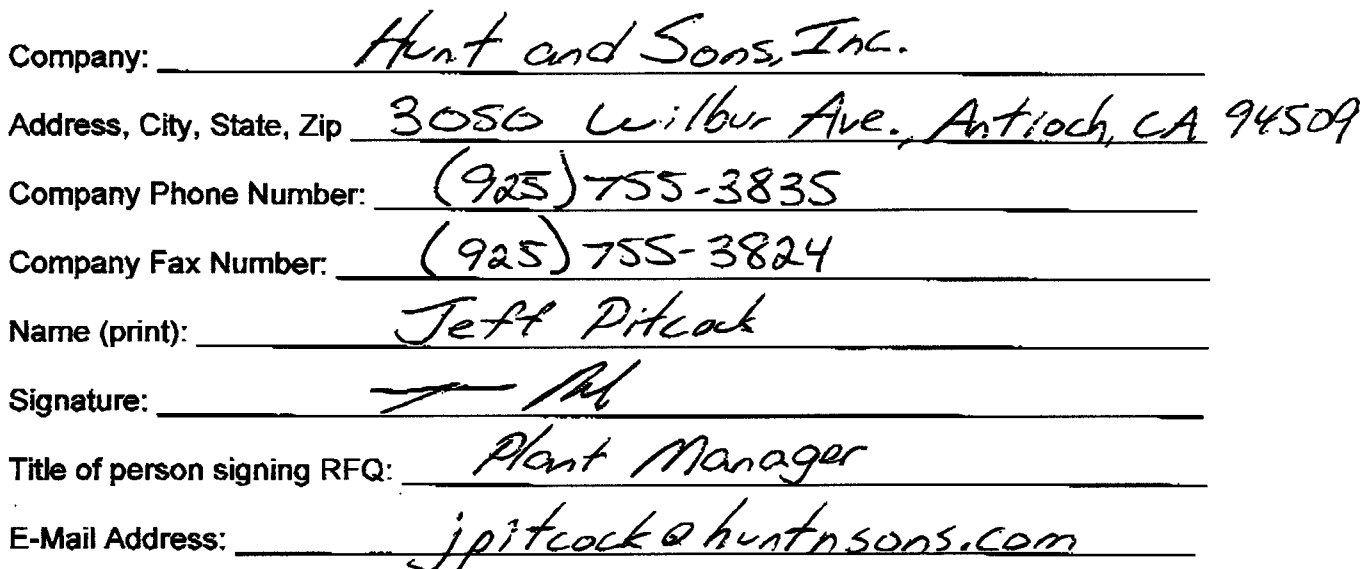 Company: Hunt and Sons, Inc.
Address, City, State, Zip 3050 Wilbur Ave., Antioch, CA 94509
Company Phone Number: (925) 755-3835
Company Fax Number: (925) 755-3824
Name (print): Jeff Pitcock
Signature:
Title of person signing RFQ: Plant Manager
E-Mail Address: jpitcock@huntnsons.com